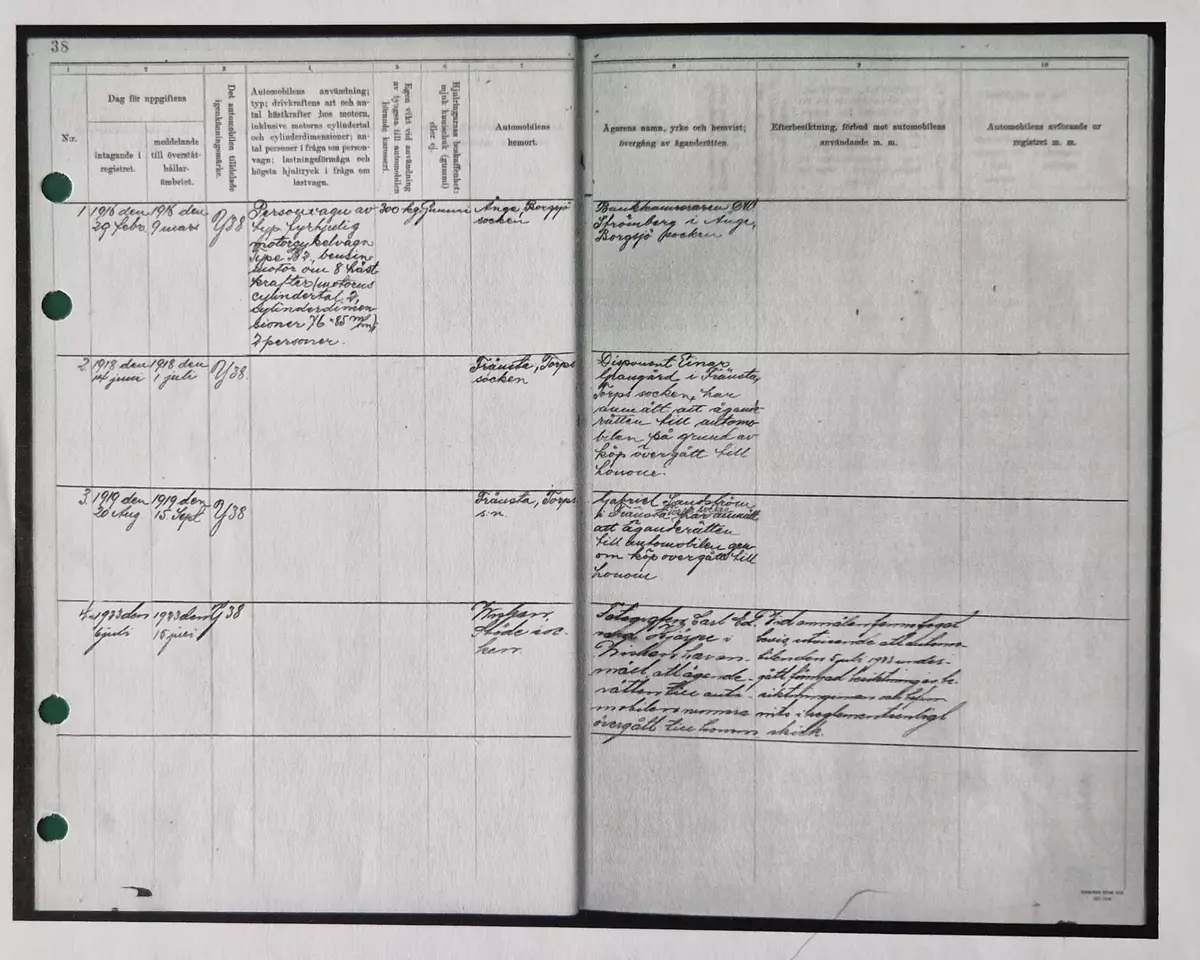 38
1
2
3
4
5
6
7
8
9
10
N:r.
Dag för uppgiftens
intagande i
registret.
meddelande
till överståt-
hållar-
ämbetet.
Det automobilen tilldelade
igenkänningsmärke.
Automobilens användning;
typ; drivkraftens art och an-
tal hästkrafter hos motorn,
inklusive motorns cylindertal
och cylinderdimensioner; an-
tal personer i fråga om person-
vagn; lastningsförmåga och
högsta hjultryck i fråga om
lastvagn.
Egen vikt vid användning
av tyngsta till automobilen
hörande karosseri.
Hjulringarnas beskaffenhet:
mjuk kautschuk (gummi)
eller ej.
Automobilens
hemort.
Ägarens namn, yrke och hemvist;
övergång av äganderätten.
Efterbesiktning, förbud mot automobilens
användande m. m.
Automobilens avförande ur
registret m. m.
1
1916 den
29 febr.
1916 den
9 mars
Y38
Personvagn av
typ fyrhjulig
motorcykelvagn
Type B 2, bensin
motor om 8 häst
krafter, motorns
cylindertal 2,
cylinderdimen
sioner 76 × 85 m/m,
2 personer.
300 kg.
Gummi
Ånge, Borgsjö
socken
Bankkamreraren
Strömberg i Ånge,
Borgsjö socken
2
1918 den
14 juni
1918 den
1 juli
Y38.
Fränsta, Torps
socken
Disponent Einar
i Fränsta,
Torps socken, har
anmält att ägande
rätten till automo
bilen på grund av
köp övergått till
honom.
3
1919 den
20 Aug
1919 den
15 Sept
Y38
Fränsta, Torps
s:n.
Gabriel Sandström
i Fränsta, Torps socken har anmält
att äganderätten
till automobilen gen
om köp övergått till
honom
4
1923 den
6 juli
1923 den
15 juli
Y38
Viskan,
Stöde soc-
ken.
Fotografen Carl Ed-
i
Viskan har an-
mält, att ägande-
rätten till auto-
mobilen numera
övergått till honom
Vid anmälan fanns fogat
bevis utvisande att automo-
bilen den 5 juli 1923 under-
gått förnyad besiktning av be-
siktningsman och befun-
nits i reglementsenligt
skick.